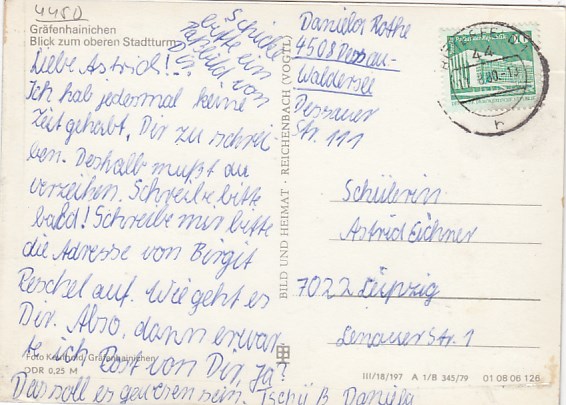 4450
Gräfenhainichen
Blick zum oberen Stadtturm
Schicke
bitte ein
Paßbild von
Dir
Liebe Astrid!
Ich hab jedesmal keine
Zeit gehabt, Dir zu schrei-
ben. Deshalb mußt du
verzeihen. Schreibe bitte
bald! Schreibe mir bitte
die Adresse von Birgit
Peschel auf. Wie geht es
Dir. Also, dann erwar-
te ich Post von Dir, Ja?
Das soll es gewesen sein. Tschü ß Daniela
Foto Gräfenhainichen
DDR 0,25 M
BILD UND HEIMAT · REICHENBACH (VOGTL)
Daniela Rothe
4508 Dessau-
Waldersee
Dessauer
Str. 111
Schülerin
Astrid Eichner
7022 Leipzig
Lenauer Str. 1
III/18/197 A 1/B 345/79 01 08 06 126